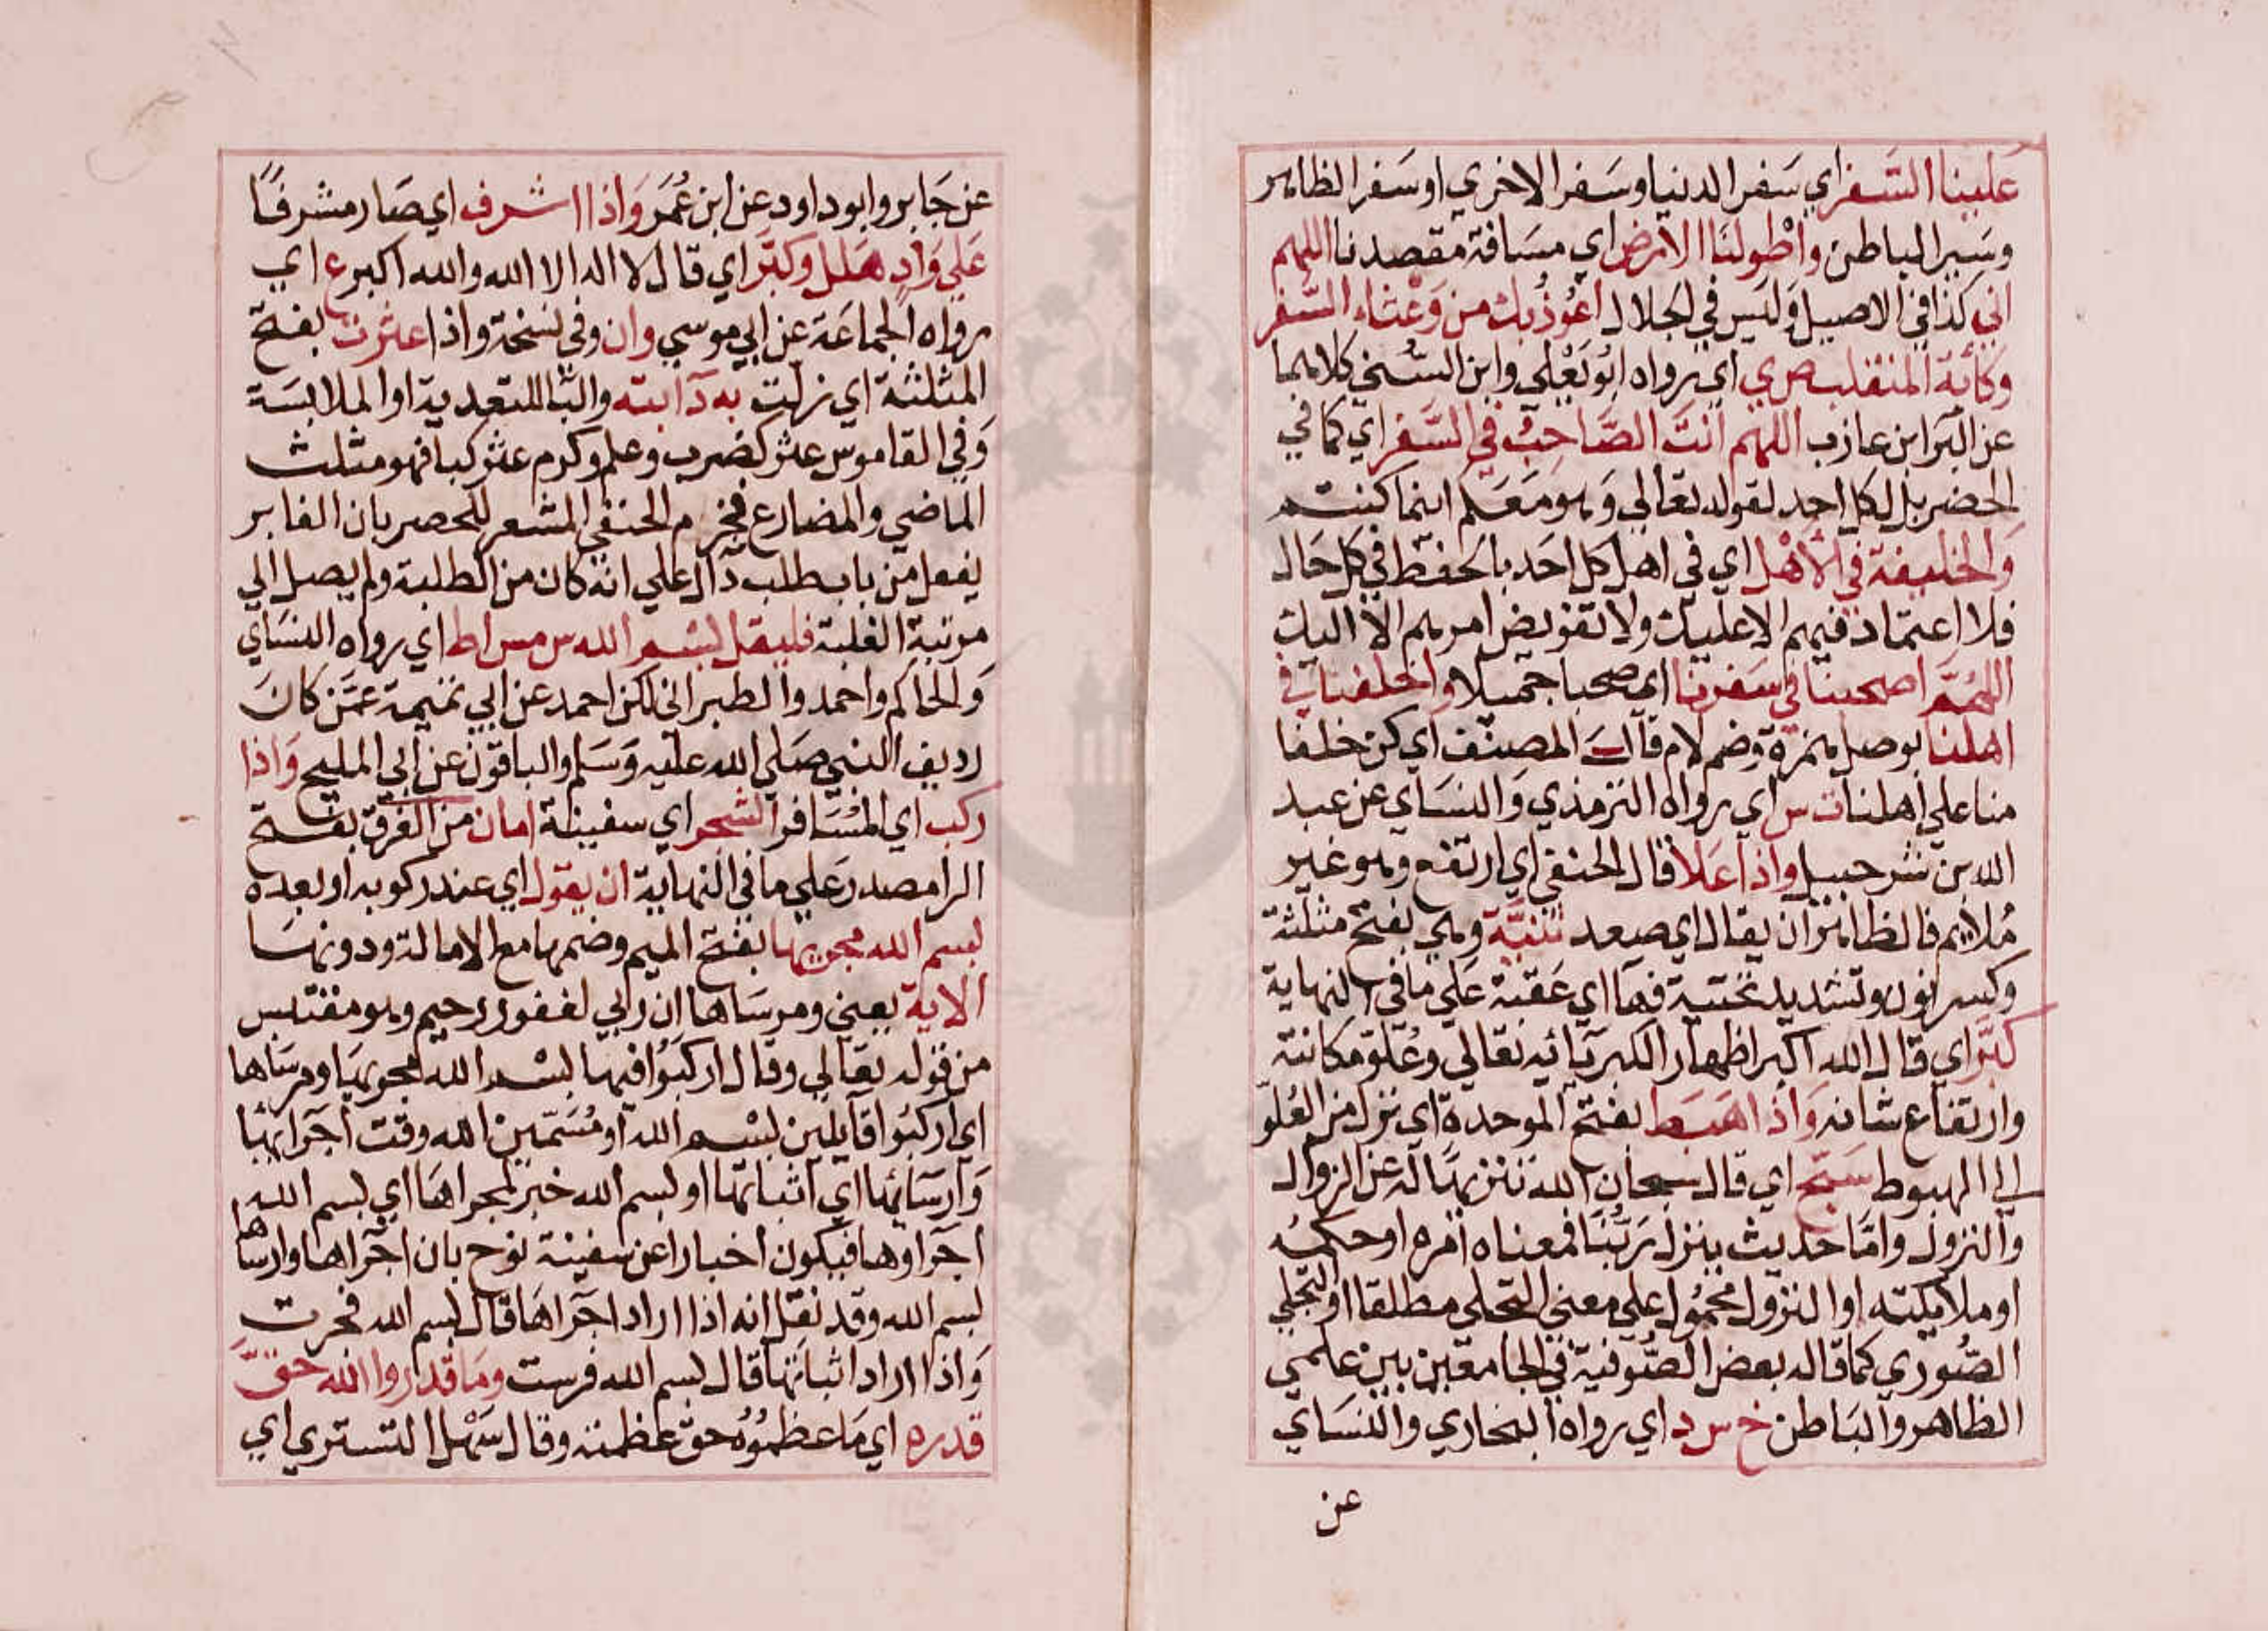 علينا السفر اي سفر الدنيا وسفر الاخري او سفر الظاهر
وسير الباطن واطولنا الارض اي مسافة مقصدنا اللهم
اني كذا في الاصيل وليس في الجلال اعوذ بك من وعثاء السفر
وكآبة المنقلب ص ي اي رواه ابو يعلي وابن السني كلاهما
عن البرا ابن عازب اللهم انت الصاحب في السفر اي كما في
الحضر بل لكل احد لقوله تعالي وهو معكم اينما كنتم
والخليفة في الاهل اي في اهل كل احد بالحفظ في كل حال
فلا اعتماد فيهم الا عليك ولا تفويض امرهم الا اليك
اللهم اصحبنا في سفرنا اي صحبا جميلا واخلفنا في
اهلنا بوصل همزة وضم لام قال المصنف اي كن خلفا
منا علي اهلنا ت س اي رواه الترمذي والنساي عن عبد
الله بن شرحبيل واذا علا قال الحنفي اي ارتفع وهو غير
ملايم فالظاهر ان يقال اي صعد ثنية وهي بفتح مثلثة
وكسر نون وتشديد تحتية فها اي عقبة علي ما في النهاية
كبر اي قال الله اكبر اظهار الكبريائه تعالي وعلو مكانته
وارتفاع شانه واذا هبط بفتح الموحدة اي نزل من العلو
الي الهبوط سبح اي قال سبحان الله تنزيها له عن الزوال
والنزول واما حديث ينزل ربنا فمعناه امره او حكمه
او ملايكته او النزول محمول علي معني التجلي مطلقا او التجلي
الصوري كما قاله بعض الصوفية في الجامعين بين علمي
الظاهر والباطن خ س د اي رواه البخاري والنساي
عن
عن جابر وابو داود عن ابن عمر واذا اشرف اي صار مشرفا
علي واد هلل وكبر اي قال لا اله الا الله والله اكبر ع اي
رواه الجماعة عن ابي موسي وان وفي نسخة واذا عثرت بفتح
المثلثة اي زلت به دابته والبا للتعدية او الملابسة
وفي القاموس عثر كضرب وعلم وكرم عثر كبا فهو مثلث
الماضي والمضارع فجزم الحنفي المشعر للحصر بان الغابر
يفعل من باب طلب دال علي انه كان من الطلبة ولم يصل الي
مرتبة الغلبة فليقل بسم الله س مس ا ط اي رواه النساي
والحاكم واحمد والطبراني لكن احمد عن ابي تميمة عمن كان
رديف النبي صلي الله عليه وسلم والباقون عن ابي المليح واذا
ركب اي المسافر الشجر اي سفينة امان من الغرق بفتح
الرا مصدر علي ما في النهاية ان يقول اي عند ركوبه او بعده
بسم الله مجريها بفتح الميم وضمها مع الامالة ودونها
الاية يعني ومرساها ان ربي لغفور رحيم وهو مقتبس
من قوله تعالي وقال اركبوا فيها بسم الله مجريها ومرساها
اي اركبوا قايلين بسم الله او مسمين الله وقت اجرايها
وارسائها اي اثباتها او بسم الله خبر لمجراها اي بسم الله
اجراوها فيكون اخبارا عن سفينة نوح بان اجراها وارساها
بسم الله وقد نقل انه اذا اراد اجراها قال بسم الله فجرت
واذا اراد اثباتها قال بسم الله فرست وما قدروا الله حق
قدره اي ما عظموه حق عظمته وقال سهل التستري اي